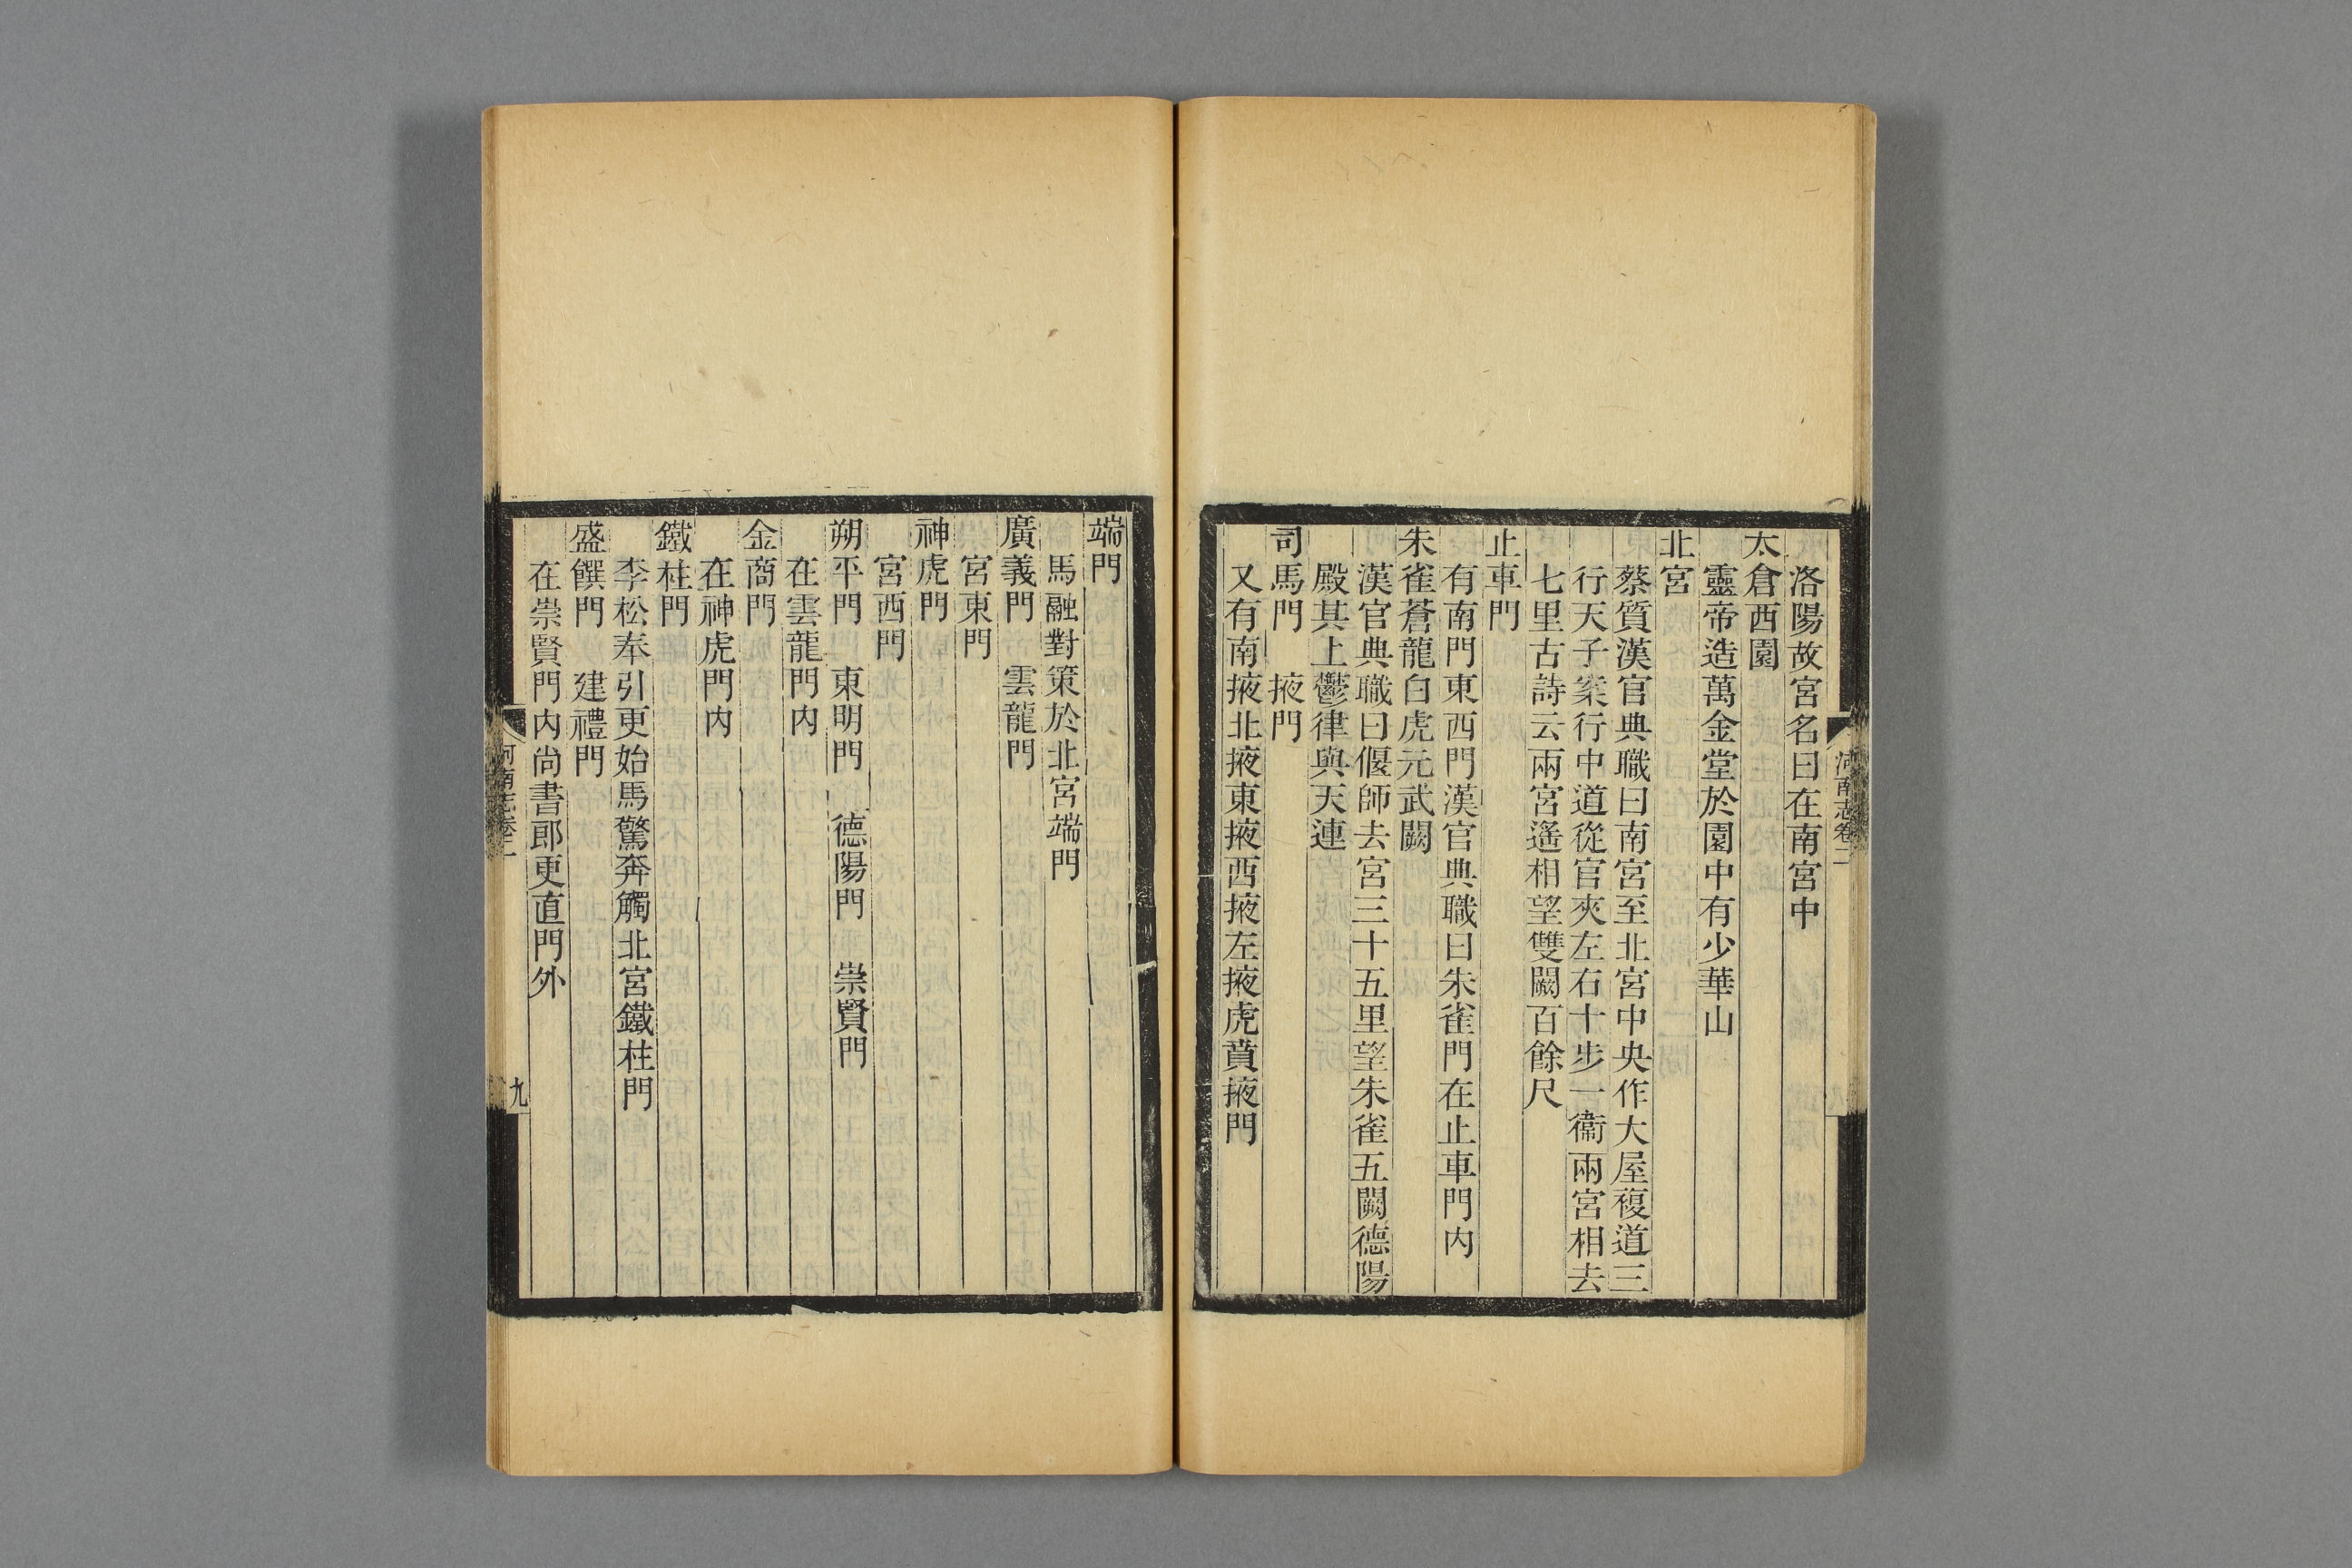 洛陽故宮名曰在南宮中
太倉西園
靈帝造萬金堂於園中有少華山
北宮
蔡質漢官典職曰南宮至北宮中央作大屋複道三
行天子案行中道從官夾左右十步一衞兩宮相去
七里古詩云兩宮遙相望雙闕百餘尺
止車門
有南門東西門漢官典職曰朱雀門在止車門内
朱雀蒼龍白虎元武闕
漢官典職曰偃師去宮三十五里望朱雀五闕德陽
殿其上鬱律與天連
司馬門　掖門
又有南掖北掖東掖西掖左掖虎賁掖門
河南志卷二
端門
馬融對策於北宮端門
廣義門　雲龍門
宮東門
神虎門
宮西門
朔平門　東明門　德陽門　崇賢門
在雲龍門内
金商門
在神虎門内
鐵柱門
李松奉引更始馬驚奔觸北宮鐵柱門
盛饌門　建禮門
在崇賢門内尚書郎更直門外
河南志卷二
九